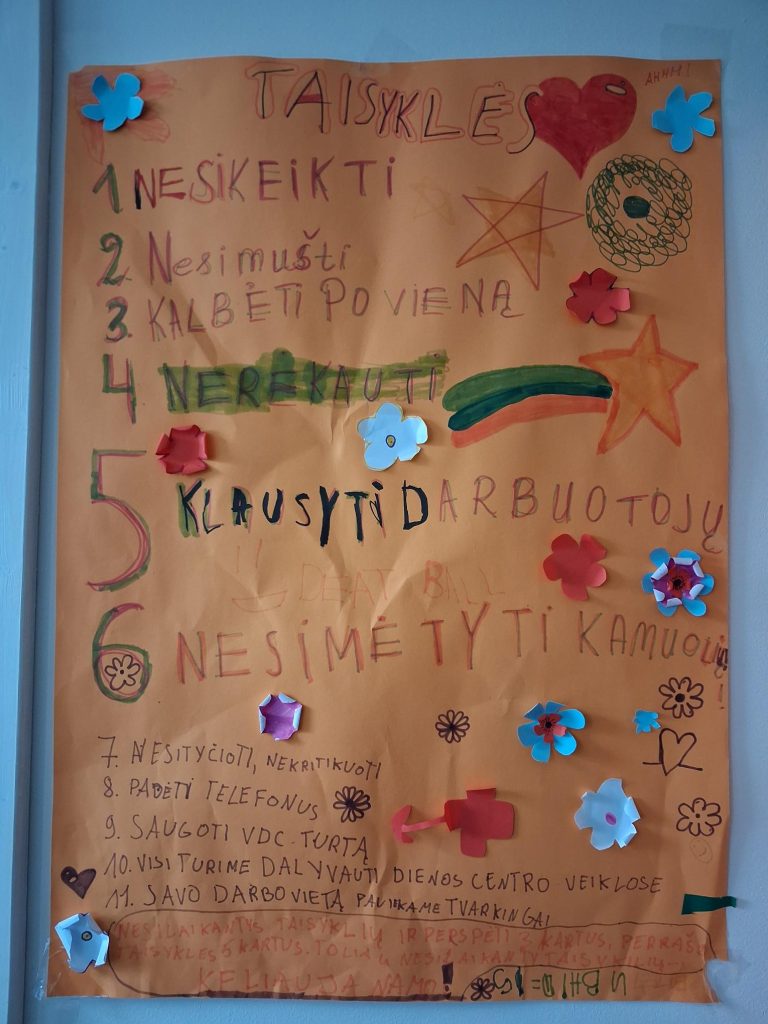 TAISYKLĖS
AHHH!
1 NESIKEIKTI
2. Nesimušti
3. KALBĖTI PO VIENĄ
4 NERĖKAUTI
5 KLAUSYTI DARBUOTOJŲ
DEAT BALL
6 NESIMĖTYTI KAMUOLIŲ!
7. NESITYČIOTI, NEKRITIKUOTI
8. PADĖTI TELEFONUS
9. SAUGOTI VDC TURTĄ
10. VISI TURIME DALYVAUTI DIENOS CENTRO VEIKLOSE
11. SAVO DARBO VIETĄ PALIEKAME TVARKINGAI
NESILAIKANTYS TAISYKLIŲ IR PERSPĖTI 3 KARTUS, PERRAŠO
TAISYKLES 5 KARTUS. TOLIAU NESILAIKANTYS TAISYKLIŲ...
KELIAUJA NAMO!